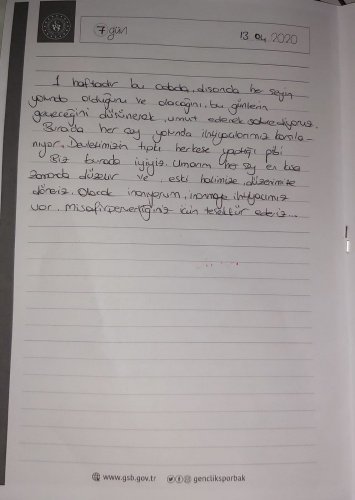 7 gün
13.04.2020
1 haftadır bu odada, dışarıda her şeyin
yolunda olduğunu ve olacağını, bu günlerin
geçeceğini düşünerek, umut ederek sabrediyoruz.
Burada her şey yolunda ihtiyaçlarımız karşıla-
nıyor. Devletimizin tıpkı herkese yaptığı gibi
Biz burada iyiyiz. Umarım her şey en kısa
zamanda düzelir ve eski halimize, düzenimize
döneriz. Olacak inanıyorum, inanmaya ihtiyacımız
var. Misafirperverliğiniz için teşekkür ederiz...
www.gsb.gov.tr genclikspor​bak